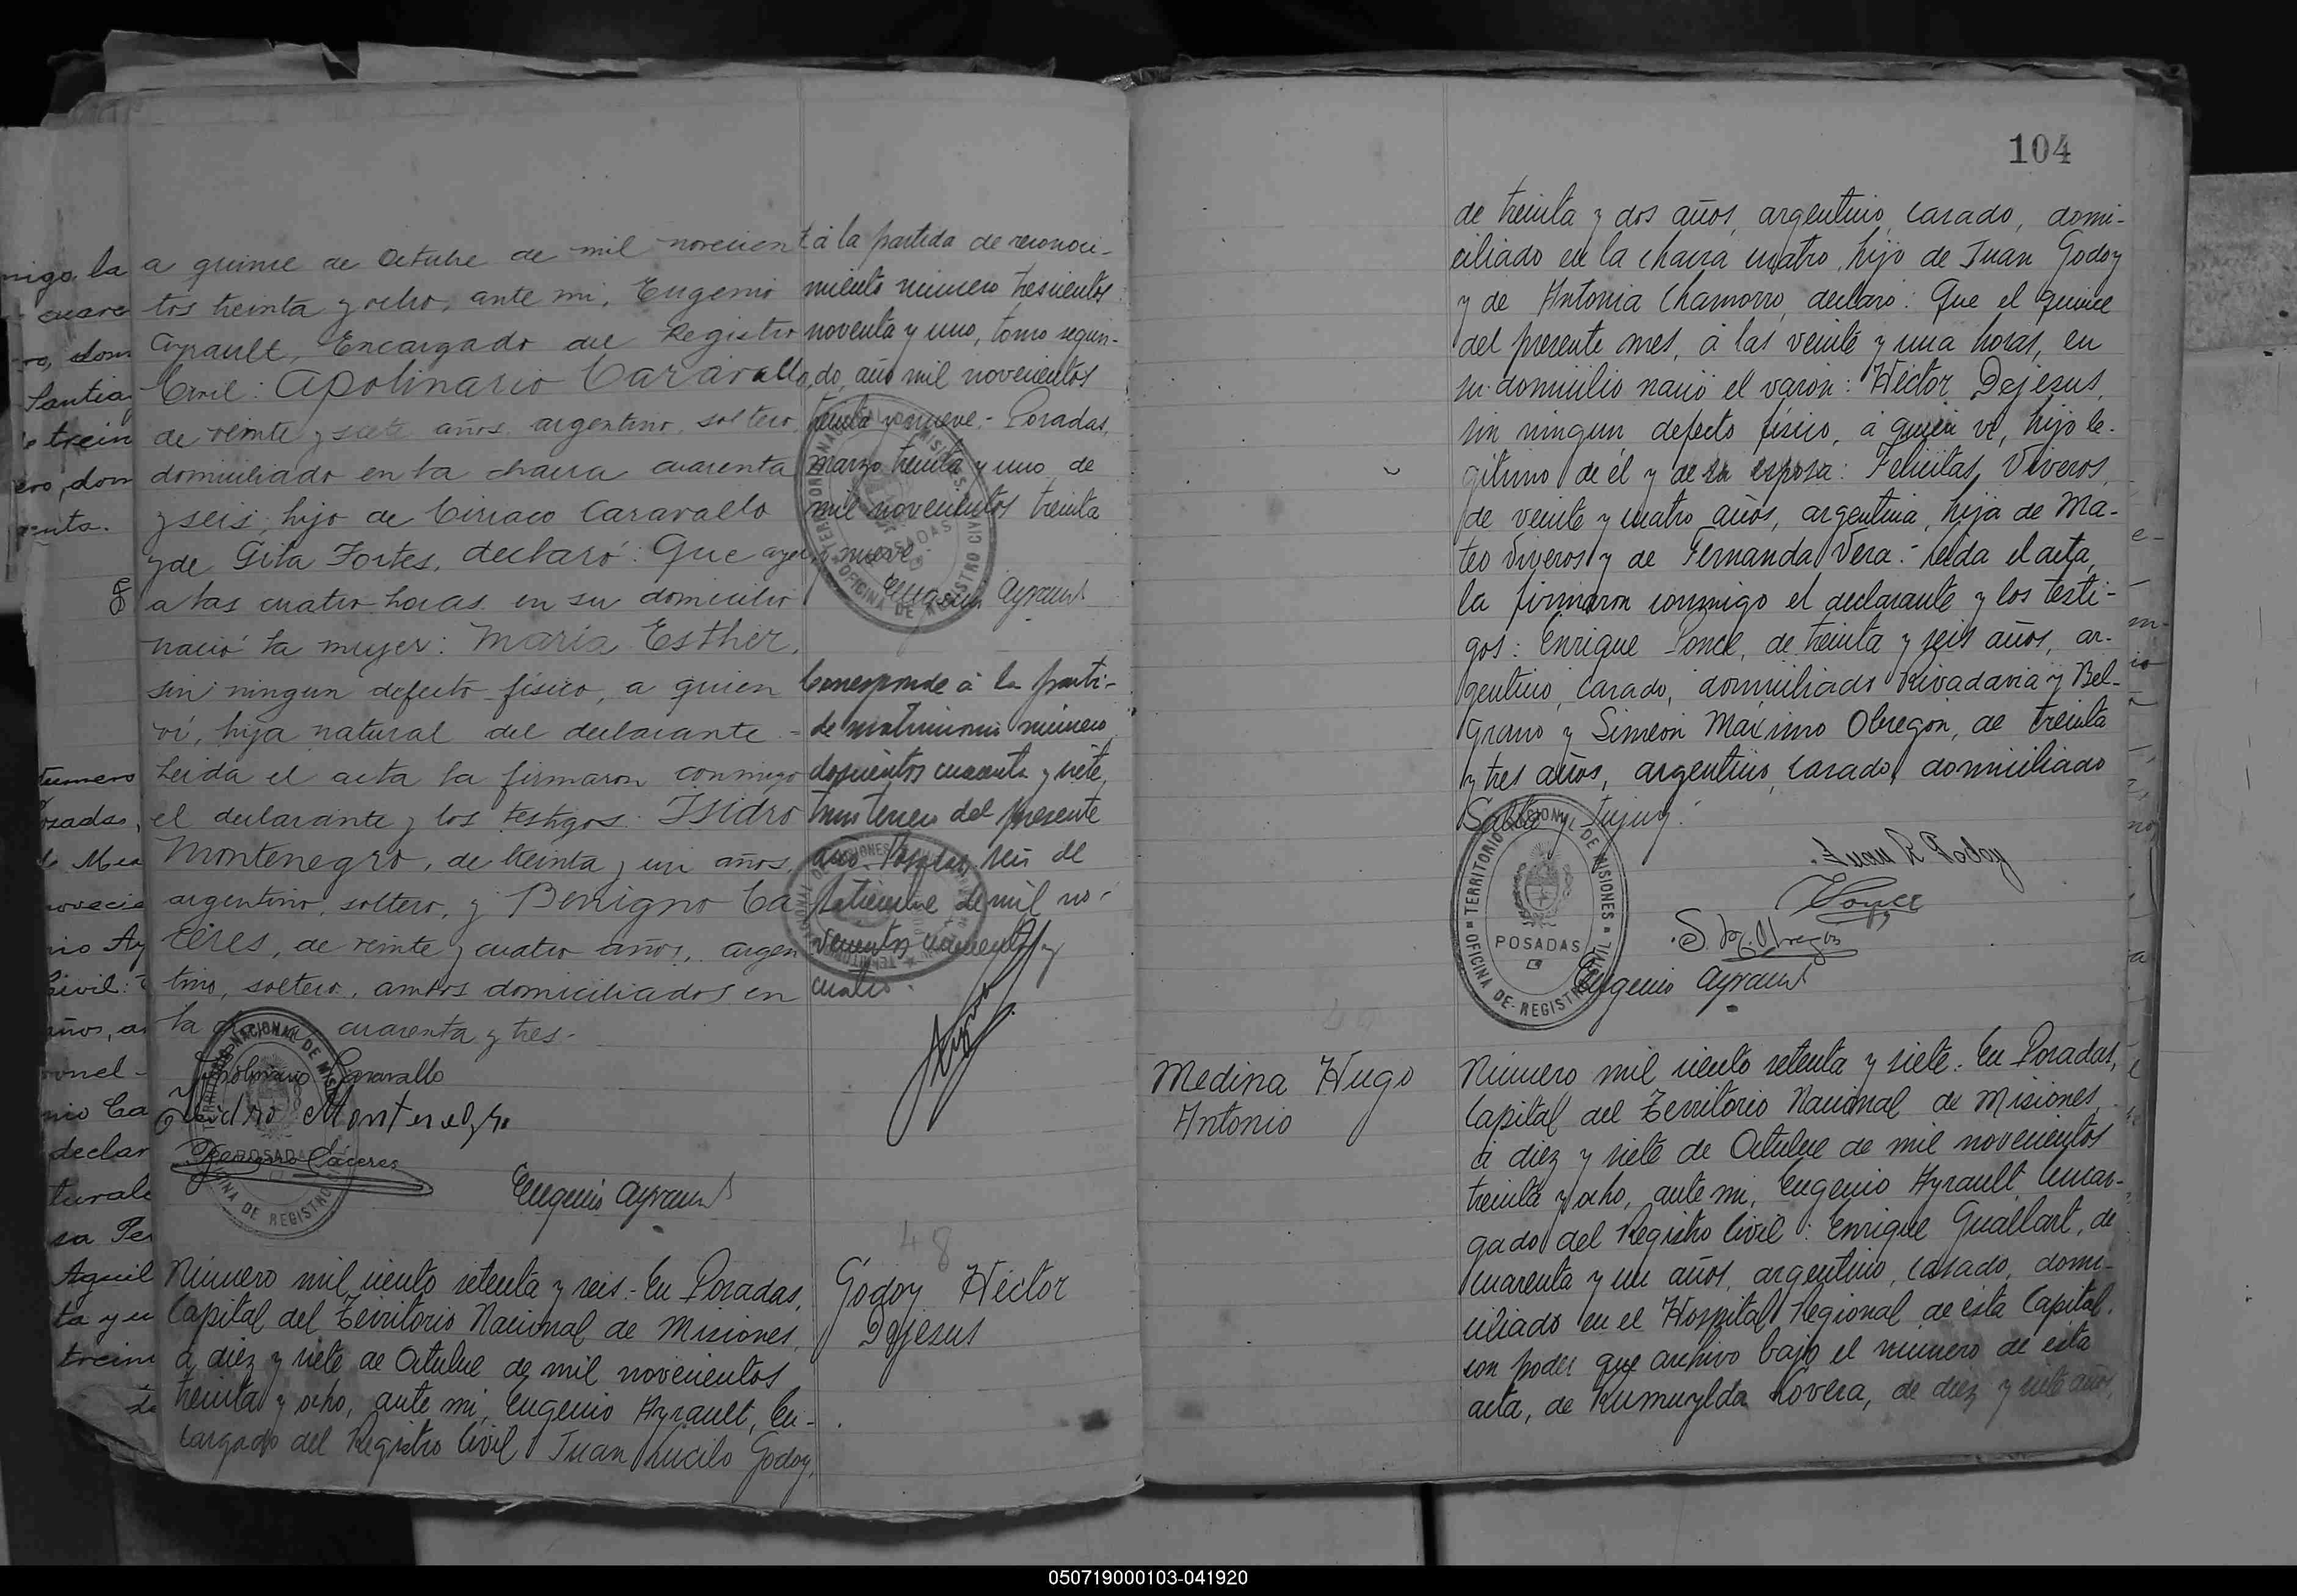 a quince de Octubre de mil novecien
tos treinta y ocho, ante mi, Eugenio
Ayrault, Encargado del Registro
Civil: Apolinario Caravallo,
de veinte y siete años, argentino, soltero,
domiciliado en la chacra cuarenta
y seis, hijo de Ciriaco Caravallo
y de Gila Fortes, declaró: Que ayer
a las cuatro horas en su domicilio
nació la mujer: María Esther,
sin ningun defecto físico, a quien
ví, hija natural del declarante.-
Leida el acta la firmaron conmigo
el declarante y los testigos: Isidro
Montenegro, de treinta y un años,
argentino, soltero, y Benigno Ca
ceres, de veinte y cuatro años, argen
tino, soltero, ambos domiciliados en
la cuarenta y tres.-
Apolinario Caravallo
Isidro Montenegro
Benigno Cáceres
Eugenio Ayrault
á la partida de reconoci-
miento número trescientos
noventa y uno, tomo segun-
do, año mil novecientos
treinta y nueve.- Posadas,
marzo treinta y uno de
mil novecientos treinta
y nueve.
Eugenio Ayrault
Corresponde á la parti-
de matrimonio número
doscientos cuarenta y siete,
tomo tercero del presente
año. Posadas, seis de
Setiembre de mil no-
vecientos cuarenta y
cuatro.
48
Número mil ciento setenta y seis.- En Posadas,
Capital del Territorio Nacional de Misiones,
á diez y siete de Octubre de mil novecientos
treinta y ocho, ante mi, Eugenio Ayrault, En-
cargado del Registro Civil: Juan Lucilo Godoy,
Godoy Héctor
Dejesus
104
de treinta y dos años, argentino, casado, domi-
ciliado en la chacra cuatro, hijo de Juan Godoy
y de Antonia Chamorro, declaró: Que el quince
del presente mes, á las veinte y una horas, en
su domicilio nació el varón: Héctor Dejesus,
sin ningun defecto físico, á quien ví, hijo le-
gítimo de él y de su esposa: Felicitas Viveros,
de veinte y cuatro años, argentina, hija de Ma-
teo Viveros y de Fernanda Vera.- Leida el acta,
la firmaron conmigo el declarante y los testi-
gos: Enrique Ponce, de treinta y seis años, ar-
gentino, casado, domiciliado Rivadavia y Bel-
grano y Simeón Máximo Obregón, de treinta
y tres años, argentino, casado, domiciliado
Salta y Jujuy.
Juan L Godoy
EPonce
S. M. Obregón
TERRITORIO NACIONAL DE MISIONES
POSADAS
OFICINA DE REGISTRO CIVIL
Eugenio Ayrault
Medina Hugo
Antonio
Número mil ciento setenta y siete.- En Posadas,
Capital del Territorio Nacional de Misiones
á diez y siete de Octubre de mil novecientos
treinta y ocho, ante mi, Eugenio Ayrault Encar-
gado del Registro Civil: Enrique Guallart, de
cuarenta y un años, argentino, casado, domi-
ciliado en el Hospital Regional de esta Capital,
con poder que archivo bajo el número de esta
acta, de Rumurylda Lovera, de diez y siete años,
050719000103-041920